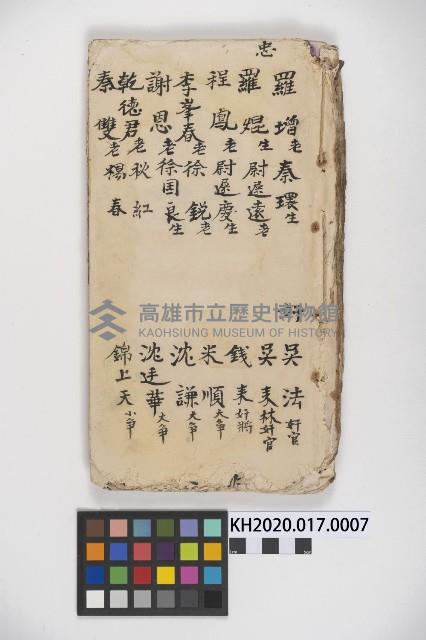 忠
羅增老 秦環生
羅焜生 尉遲遠老
程鳳老 尉遲慶生
李峯春老 徐銳老
謝恩老 徐国良生
乾德君老 秋紅
秦雙老 楊春
奸
吳法奸官
吳耒林奸官
錢耒奸將
米順大爭
沈謙大爭
沈廷華大爭
錦上天小爭
高雄市立歷史博物館
KAOHSIUNG MUSEUM OF HISTORY
KH2020.017.0007